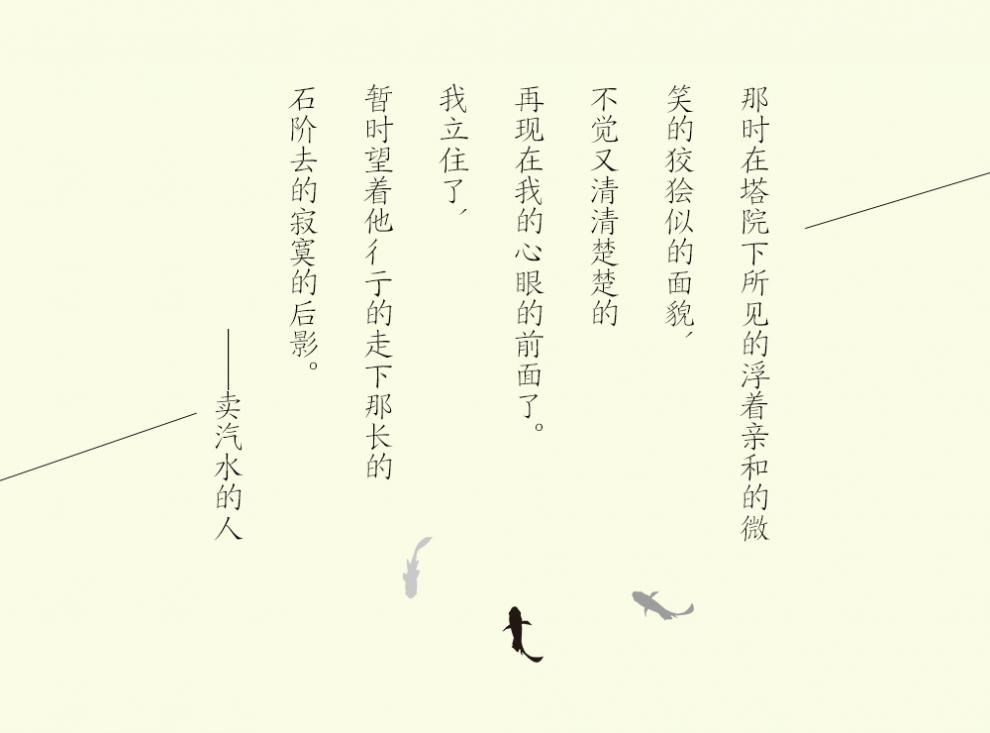 那时在塔院下所见的浮着亲和的微
笑的狡狯似的面貌，
不觉又清清楚楚的
再现在我的心眼的前面了。
我立住了，
暂时望着他彳亍的走下那长的
石阶去的寂寞的后影。
——卖汽水的人